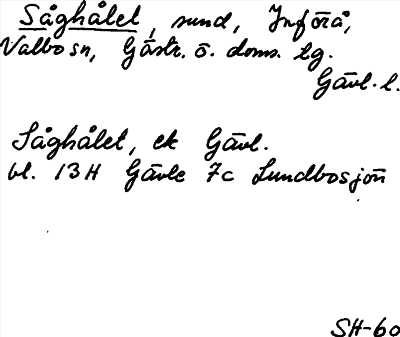 Såghålet, sund, Införå,
Valbo sn, Gästr. ö. doms. tg.
Gävl. l.
Såghålet, ek Gävl.
bl. 13H Gävle 7c Lundbosjön
SH-60